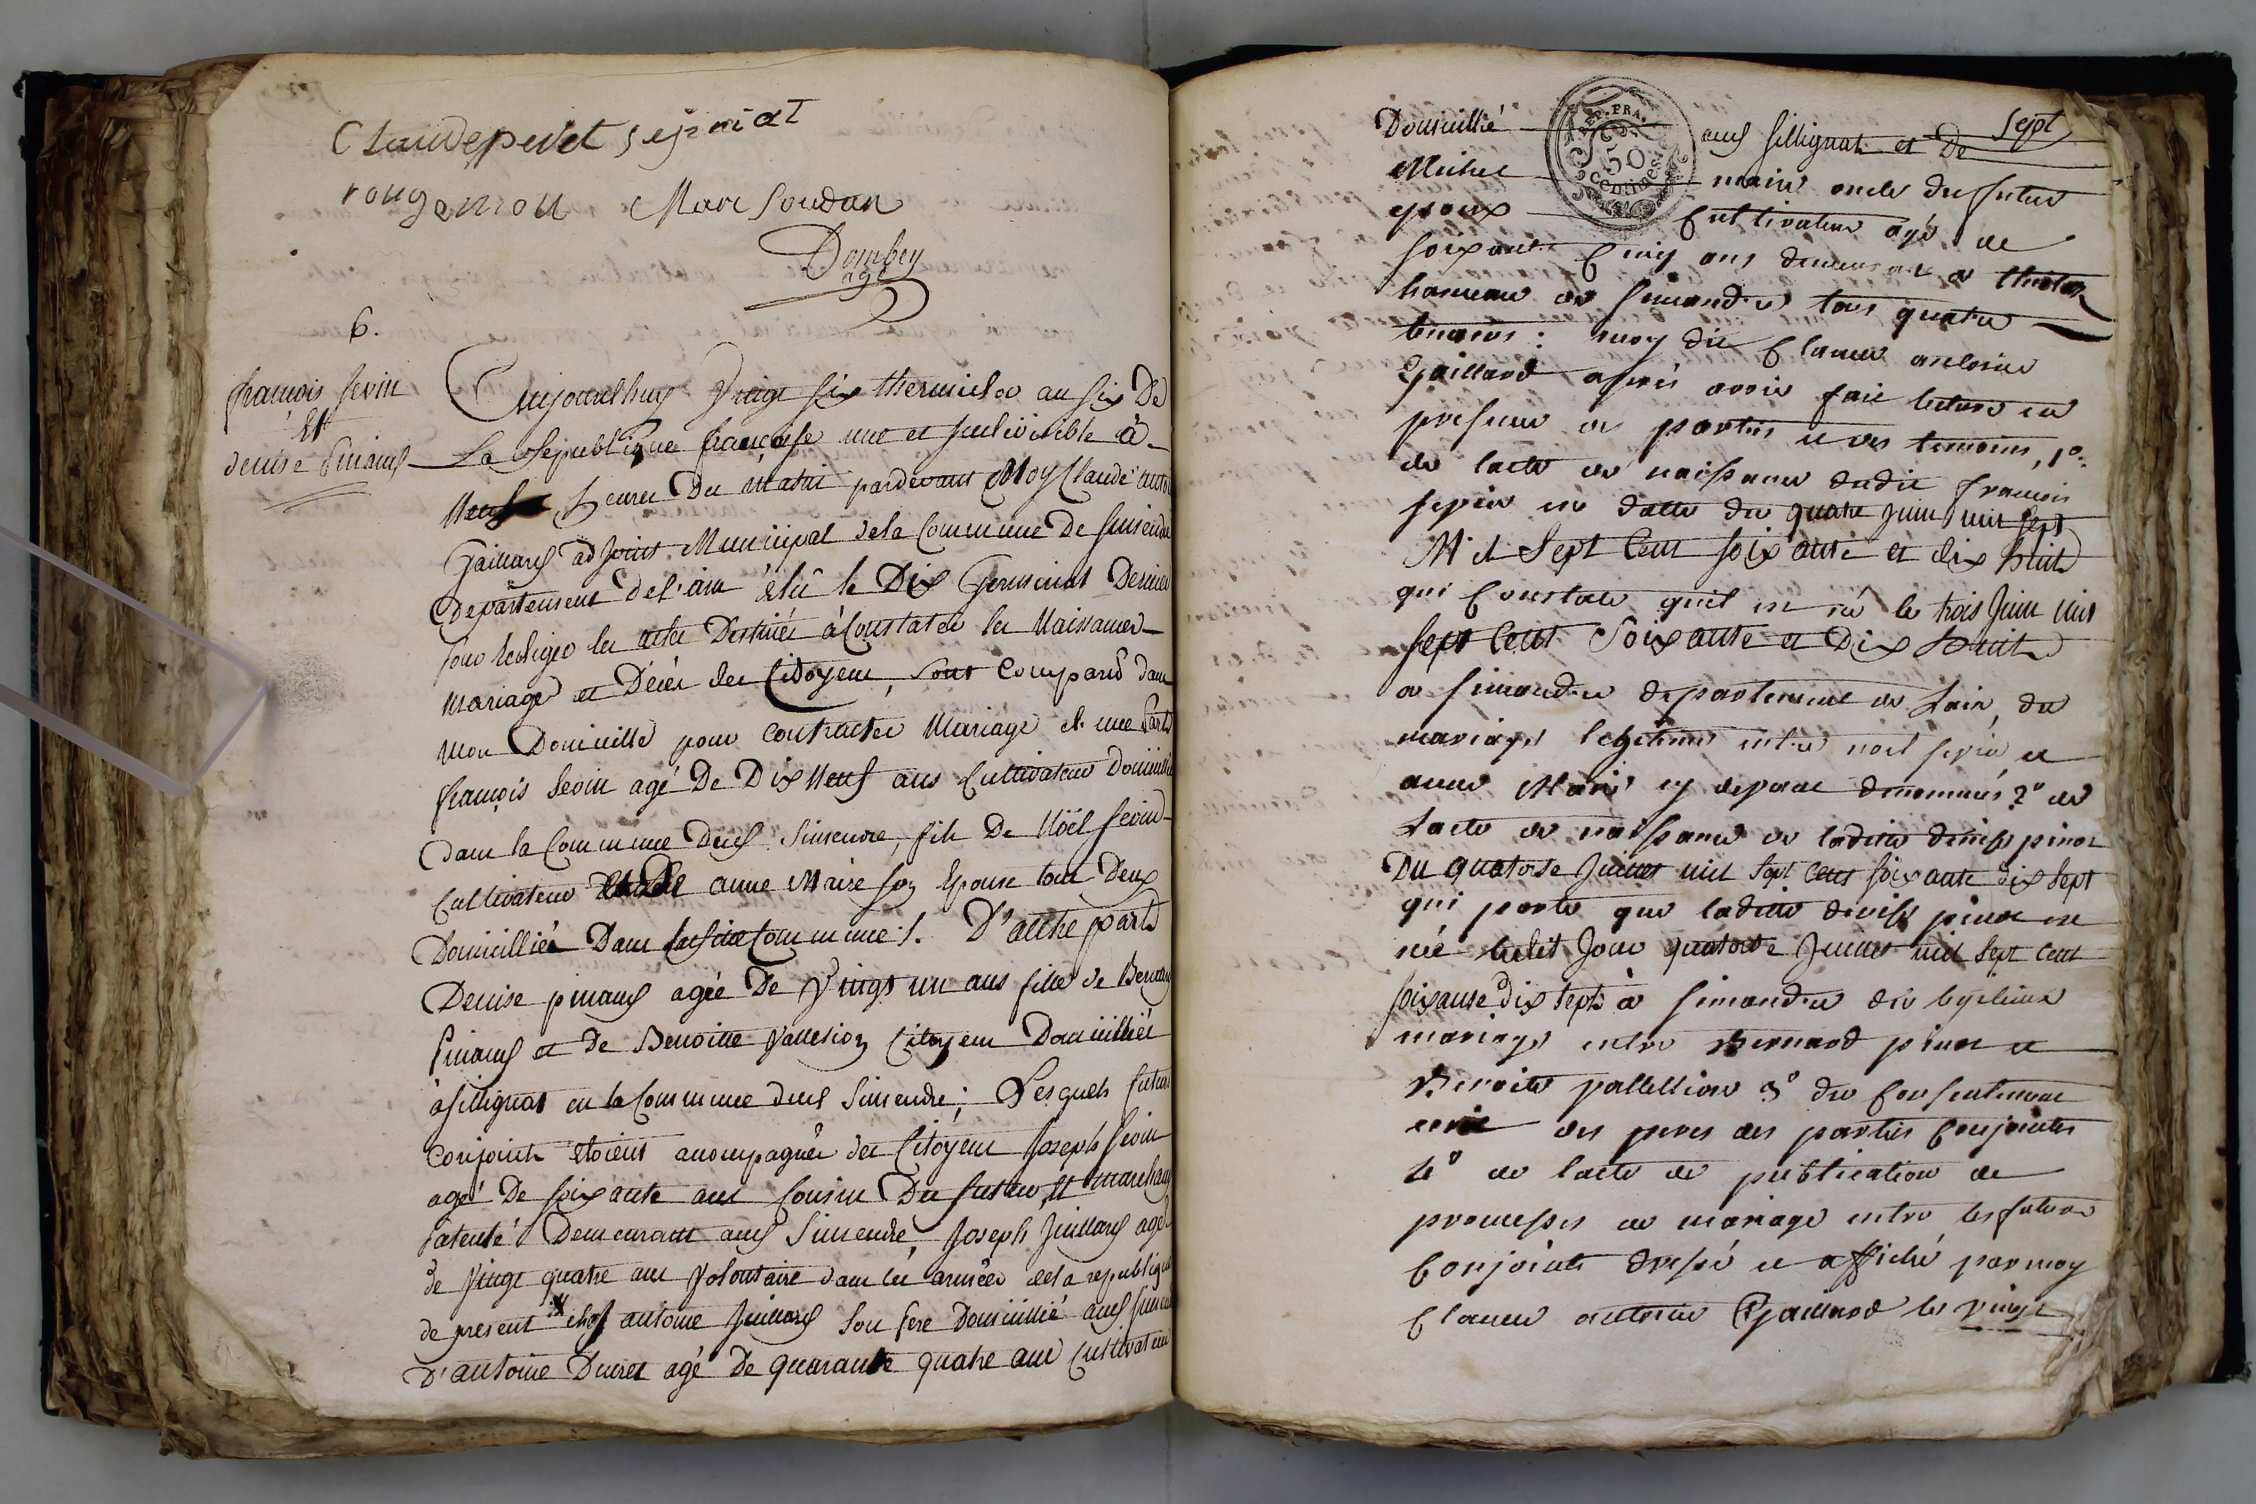 Claude peret sejniat
rougemon Marc Soudan
Dombey
agt
6.
françois sevin
Et
denise Pinard
Aujourdhuy Vingt six thermidor an six De
La Republique françoise une et indivisible à
Neuf heures Du Matin pardevant Moy Claude antoi
Gaillard adjoint Municipal de la Commune de Simendre
Departement de l'ain élû le Dix Germinal Dernier
pour Rediger les actes Destinés à Constater les Naissances
Mariage et Décés des Citoyens, sont Comparu dans
Mon Domicille pour Contracter Mariage d'une Part
françois Sevin agé De Dix Neuf ans Cultivateur Domicillié
Dans la Commune dud Simendre, fils De Noël Sevin
Cultivateur anne Marie son Epouse tout Deux
Domicilliés Dans laditte Commune. D'autre part
Denise pinard agée De Vingt un ans fille de Bernard
Pinard et de Benoitte Vallesion Citoyens Domicilliés
à Sillignat en la Commune dud Simendre; Lesquels futurs
Conjoints étoient accompagnés des Citoyens Joseph Sevin
agé De soixante ans Cousin Du futur, et marchand
Patenté Demeurant aud Simendre, Joseph Juillard agé
de Vingt quatre ans Volontaire dans les armées de la republique
de present chez antoine Juillard Son Pere Domicillié aud Simendre
D'antoine Ducret agé De quarante quatre ans Cultivateur
Sept
Domicillié aud Sillignat et De
Michel maire oncle du futur
epoux Cultivateur agé de
soixante Cinq ans demeurant a
hameau de Simandre tous quatre
temoins: moy dit Claude antoine
Gaillard après avoir fait lecture en
presence des parties et des temoins, 1o
de lacte de naissance dudit francois
sevin en datte du quatre juin mil sept
Mil Sept Cent soixante et dix huit
qui Constate quil est né le trois Juin mil
sept Cent Soixante et Dix huit
a Simandre departement de lain, du
mariage legitime entre noel sevin et
anne Marie cy devant denommés 2o de
lacte de naissance de laditte denise pinar
Du quatorse Juillet mil sept cent soixante dix sept
qui porte que laditte denise pinar est
née ledit Jour quatorse Juillet mil sept cent
soixante dix sept à Simandre du legitime
mariage entre Bernard pinar et
Benoite vallession 3o du Consentement
des peres des parties Conjointes
4o de lacte de publication de
promesses de mariage entre les futurs
Conjoints dressé et affiché par moy
Claude antoine Gaillard le vingt
REP. FRA.
50
centimes